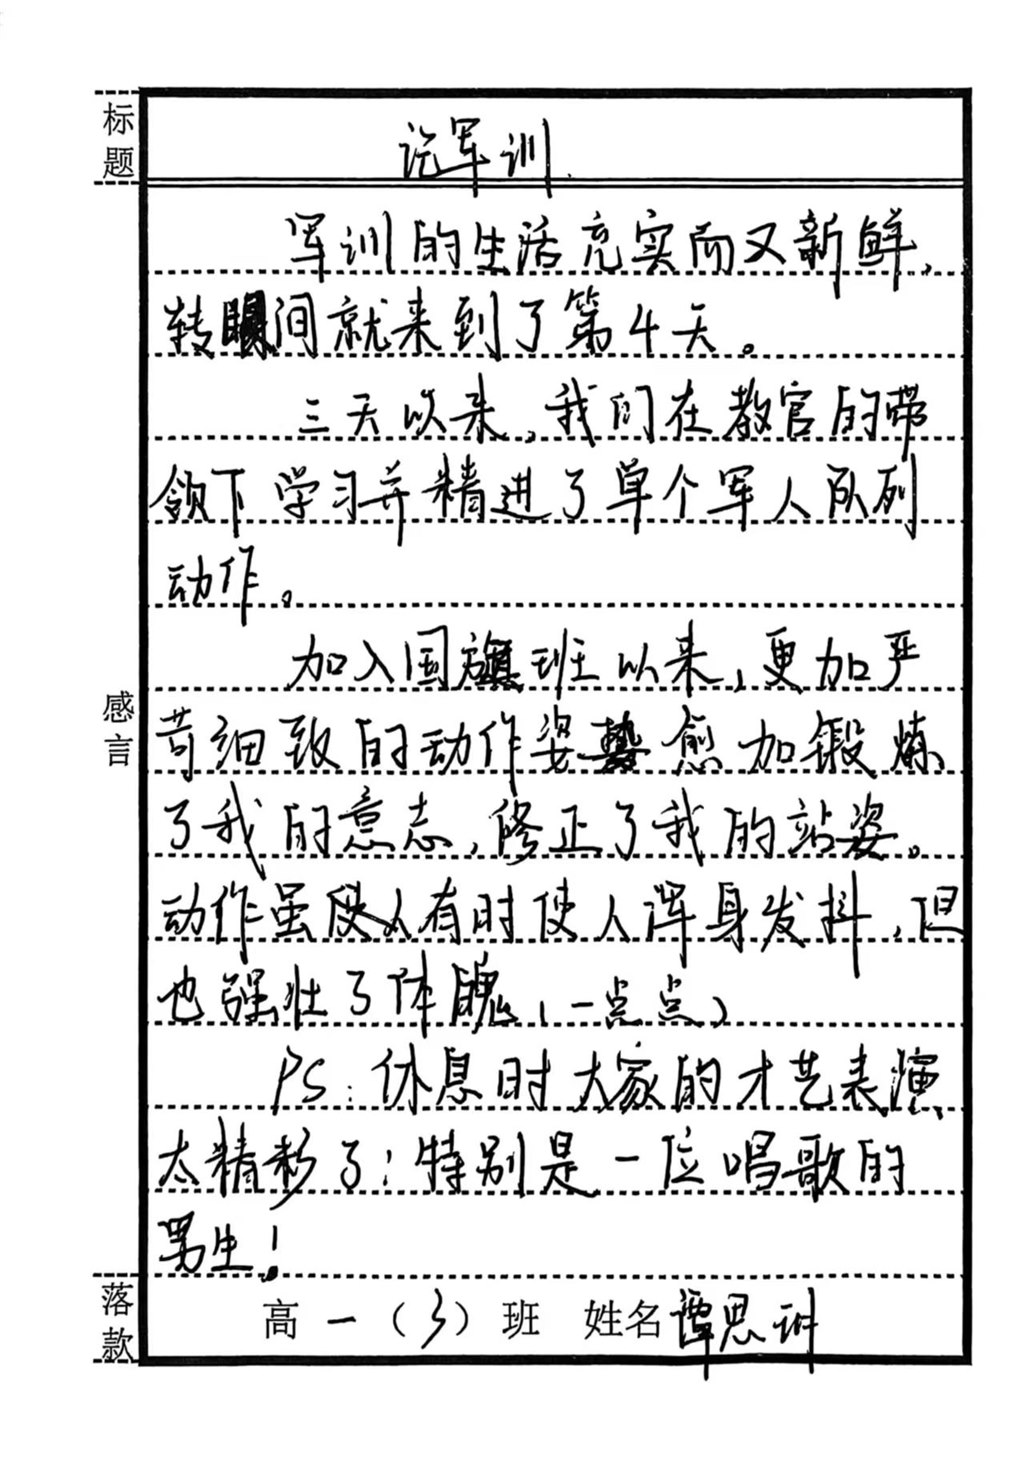 标题
论军训
军训的生活充实而又新鲜,
转瞬间就来到了第4天。
三天以来,我们在教官的带
领下学习并精进了单个军人队列
动作。
加入国旗班以来,更加严
苛细致的动作姿势愈加锻炼
了我的意志,修正了我的站姿。
动作虽 有时使人浑身发抖,但
也强壮了体魄(一点点)
PS:休息时大家的才艺表演
太精彩了!特别是一位唱歌的
男生!
感言
落款
高一(3)班 姓名 谭思